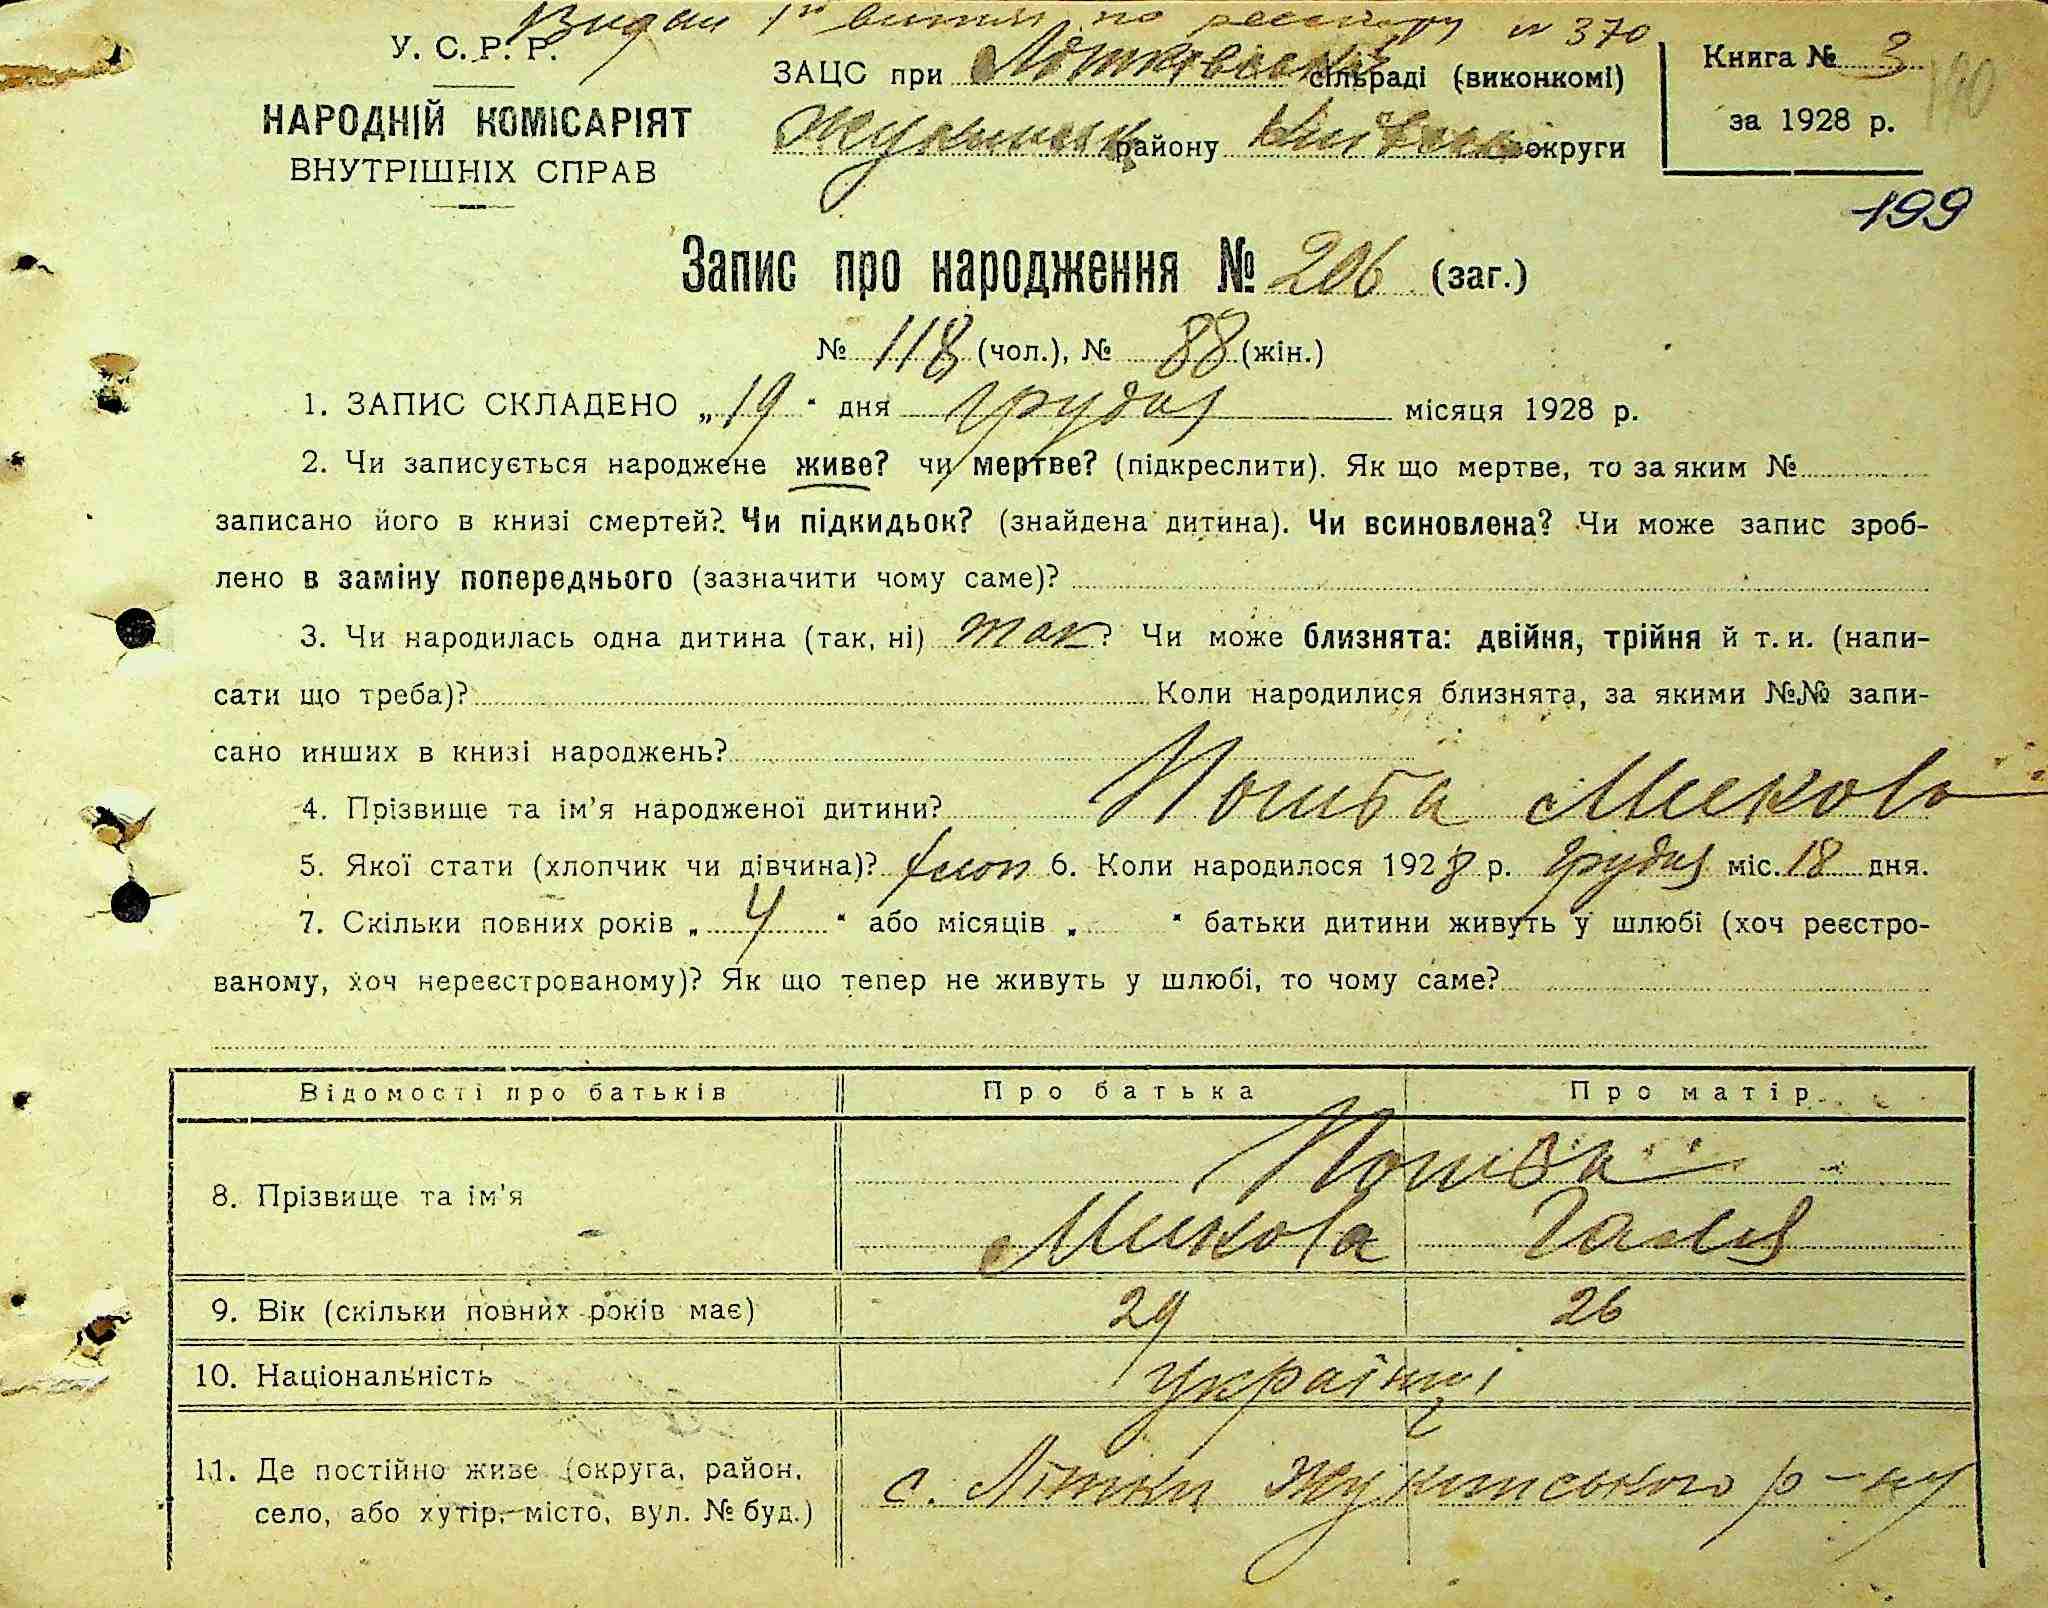 Видан 1й витяг по реєстру № 370
У. С. Р. Р.
НАРОДНІЙ КОМІСАРІЯТ
ВНУТРІШНІХ СПРАВ
ЗАЦС при Літківській сільраді (виконкомі)
Жукинськ району Київськ округи
Книга № 3
за 1928 р.
190
199
Запис про народження № 206 (заг.)
№ 118 (чол.), № 88 (жін.)
1. ЗАПИС СКЛАДЕНО „ 19 “ дня грудня місяця 1928 р.
2. Чи записується народжене живе? чи мертве? (підкреслити). Як що мертве, то за яким №
записано його в книзі смертей? Чи підкидьок? (знайдена дитина). Чи всиновлена? Чи може запис зроб-
лено в заміну попереднього (зазначити чому саме)?
3. Чи народилась одна дитина (так, ні) так? Чи може близнята: двійня, трійня й т. и. (напи-
сати що треба)? Коли народилися близнята, за якими №№ запи-
сано инших в книзі народжень?
4. Прізвище та ім’я народженої дитини? Микола
5. Якої стати (хлопчик чи дівчина)? хлоп 6. Коли народилося 1928 р. грудня міс. 18 дня.
7. Скільки повних років „ 4 “ або місяців „ “ батьки дитини живуть у шлюбі (хоч реєстро-
ваному, хоч нереєстрованому)? Як що тепер не живуть у шлюбі, то чому саме?
Відомості про батьків Про батька Про матір
8. Прізвище та ім’я
Микола Галя
9. Вік (скільки повних років має) 29 26
10. Національність українці
11. Де постійно живе (округа, район,
село, або хутір, місто, вул. № буд.)
с. Літки Жукинського р-ну